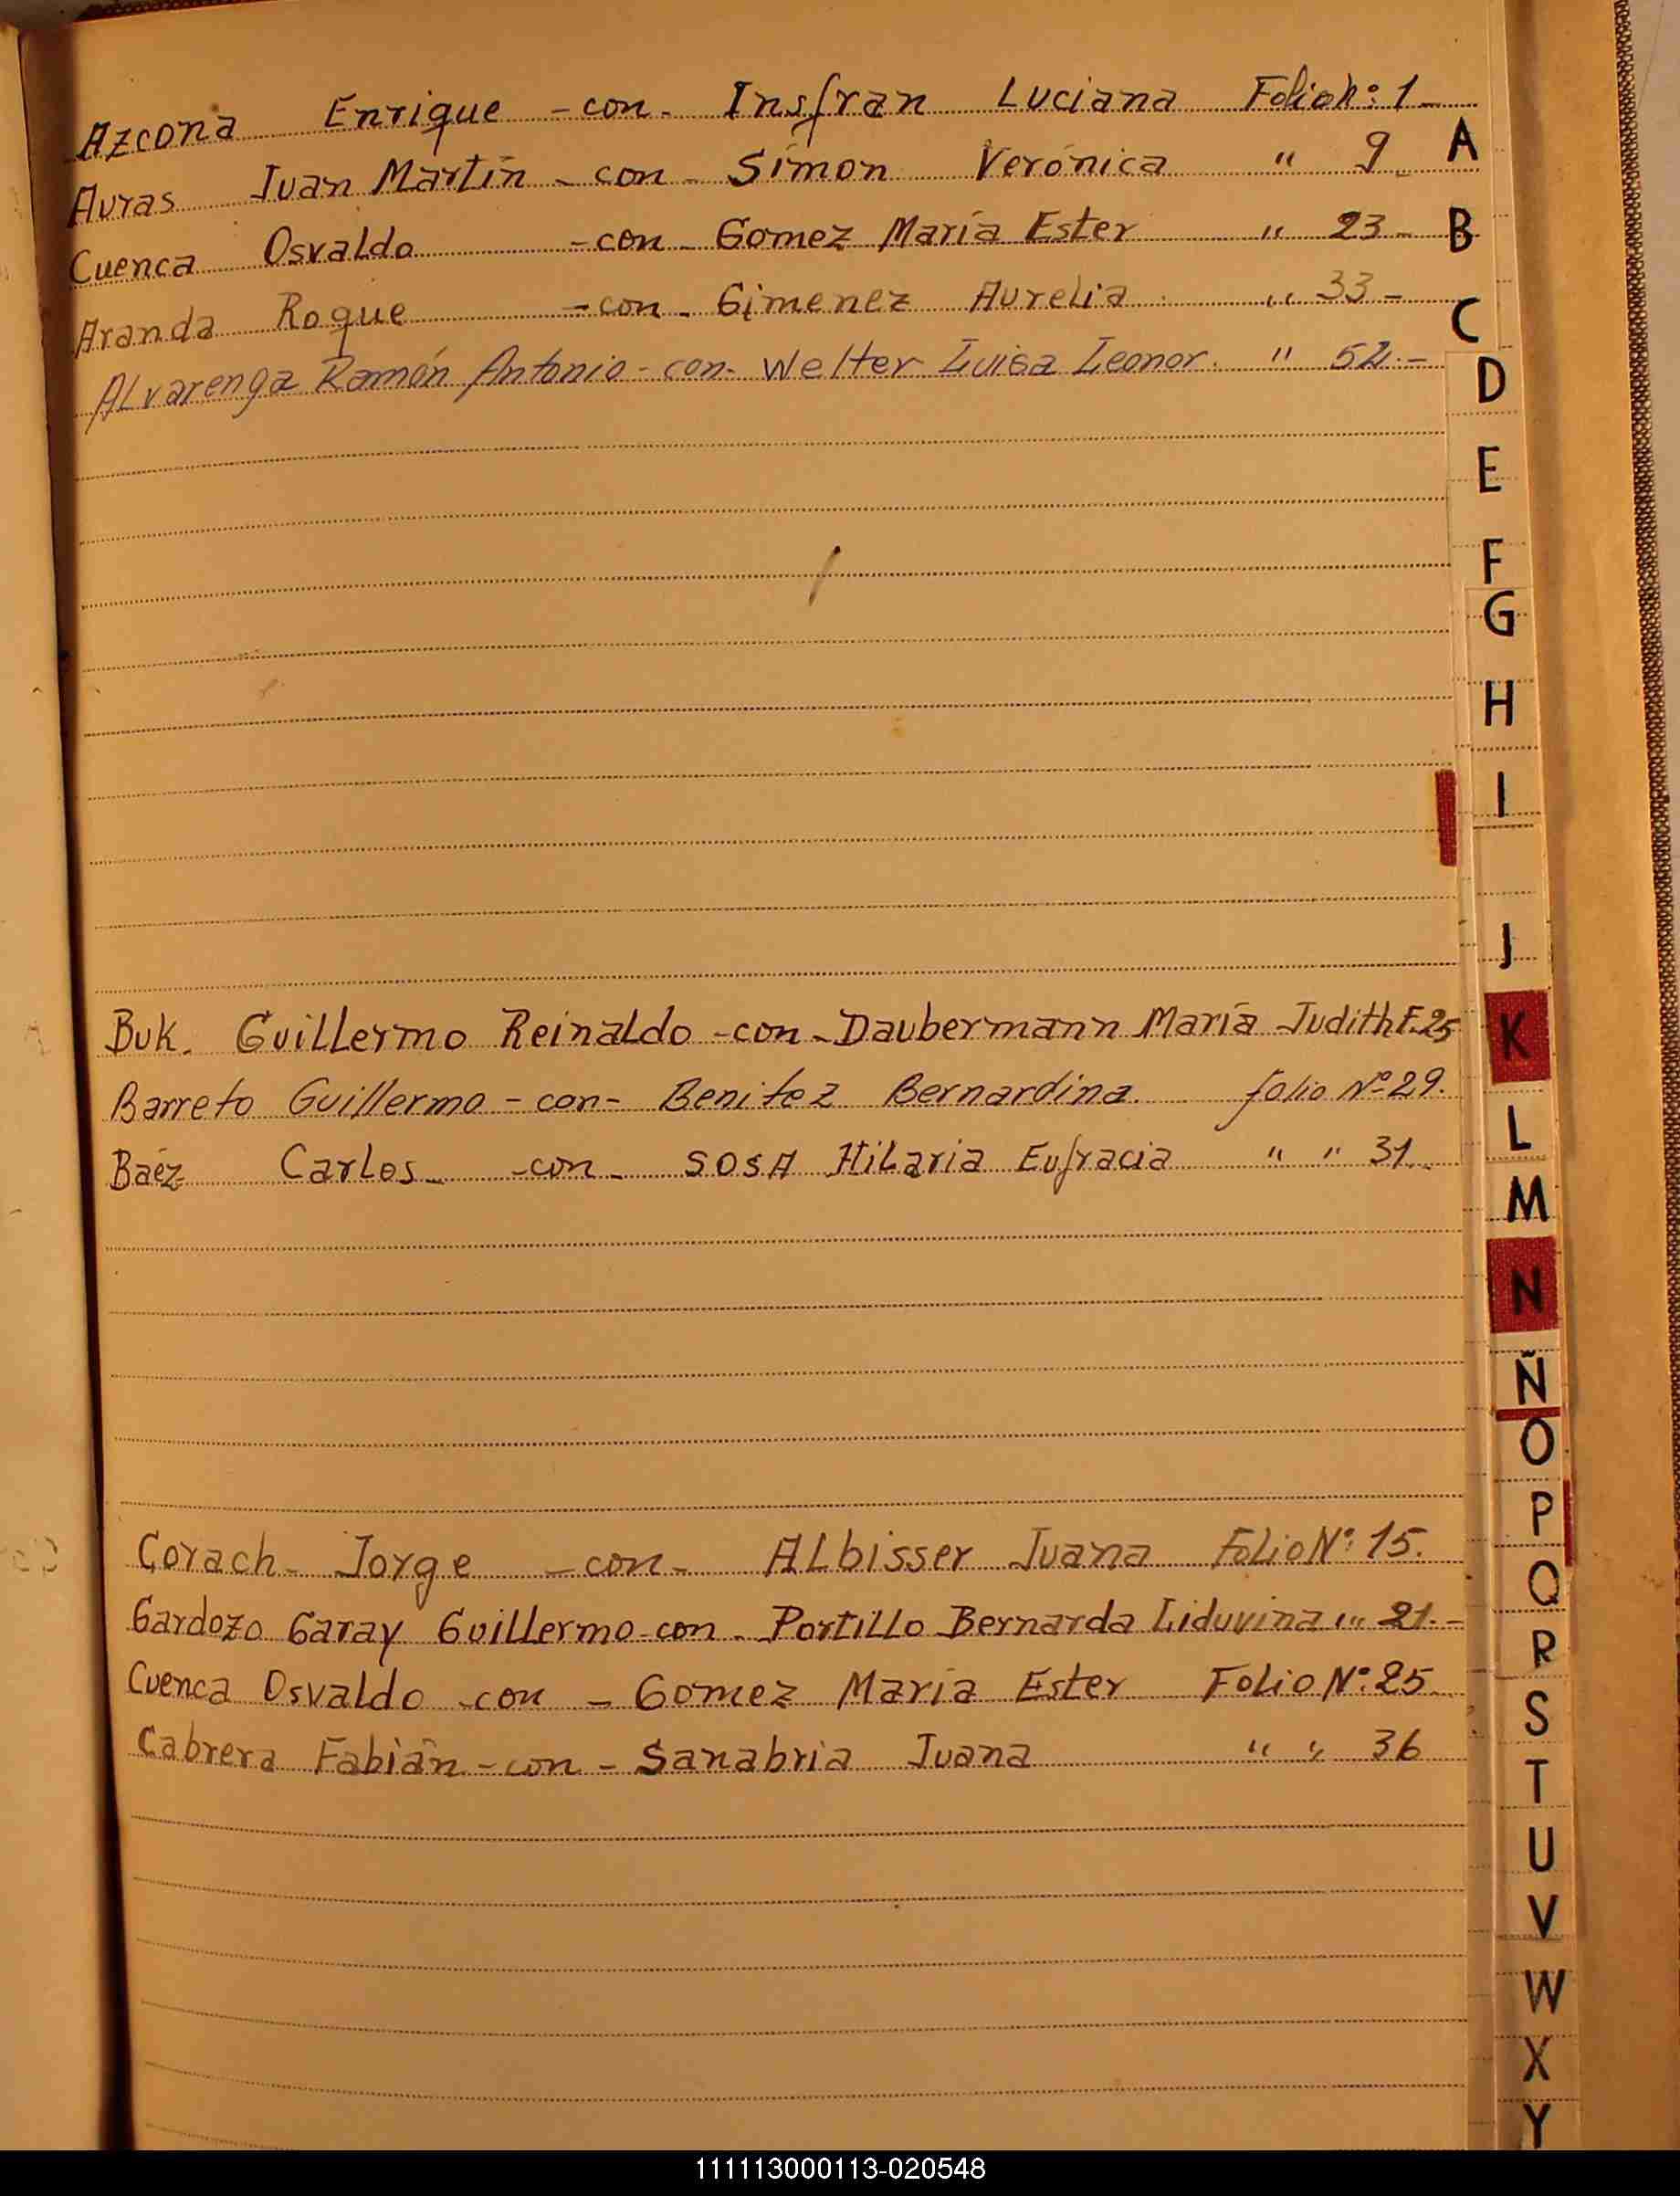 Azcona Enrique - con - Insfran Luciana Folio N: 1
Auras Juan Martín - con - Simón Verónica " 9
Cuenca Osvaldo - con - Gomez María Ester " 23 -
Aranda Roque - con - Gimenez Aurelia " 33 -
Alvarenga Ramón Antonio - con - Welter Luisa Leonor. " 52. -
Buk. Guillermo Reinaldo - con - Daubermann María Judith F. 25
Barreto Guillermo - con - Benitez Bernardina. folio Nº 29.
Baéz Carlos - con - SOSA Hilaria Eufracia " " 31.
Corach - Jorge - con - Albisser Juana Folio Nº: 15.
Cardozo Garay Guillermo - con - Portillo Bernarda Liduvina "" 21. -
Cuenca Osvaldo - con - Gomez María Ester Folio Nº: 25
Cabrera Fabián - con - Sanabria Juana " " 36
A
B
C
D
E
F
G
H
I
J
K
L
M
N
Ñ
O
P
Q
R
S
T
U
V
W
X
Y
111113000113-020548